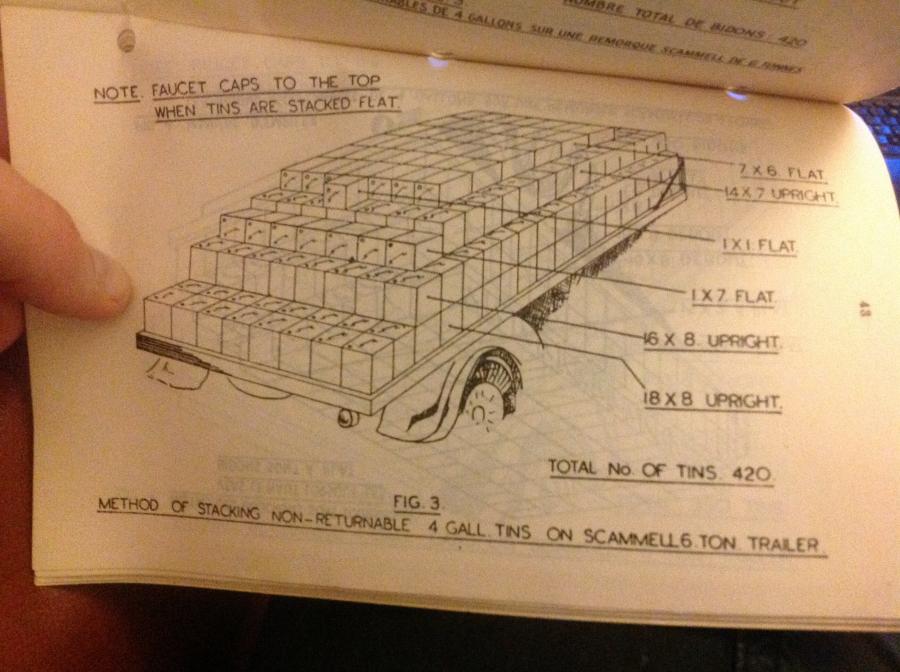 NOMBRE TOTAL DE BIDONS: 420
DE 4 GALLONS SUR UNE REMORQUE SCAMMELL DE 6 TONNES
NOTE. FAUCET CAPS TO THE TOP
WHEN TINS ARE STACKED FLAT.
7 X 6. FLAT.
14 X 7 UPRIGHT.
1 X 1. FLAT.
1 X 7. FLAT.
16 X 8. UPRIGHT.
18 X 8 UPRIGHT.
43
TOTAL No. OF TINS. 420.
FIG. 3.
METHOD OF STACKING NON-RETURNABLE 4 GALL. TINS ON SCAMMELL 6. TON. TRAILER.